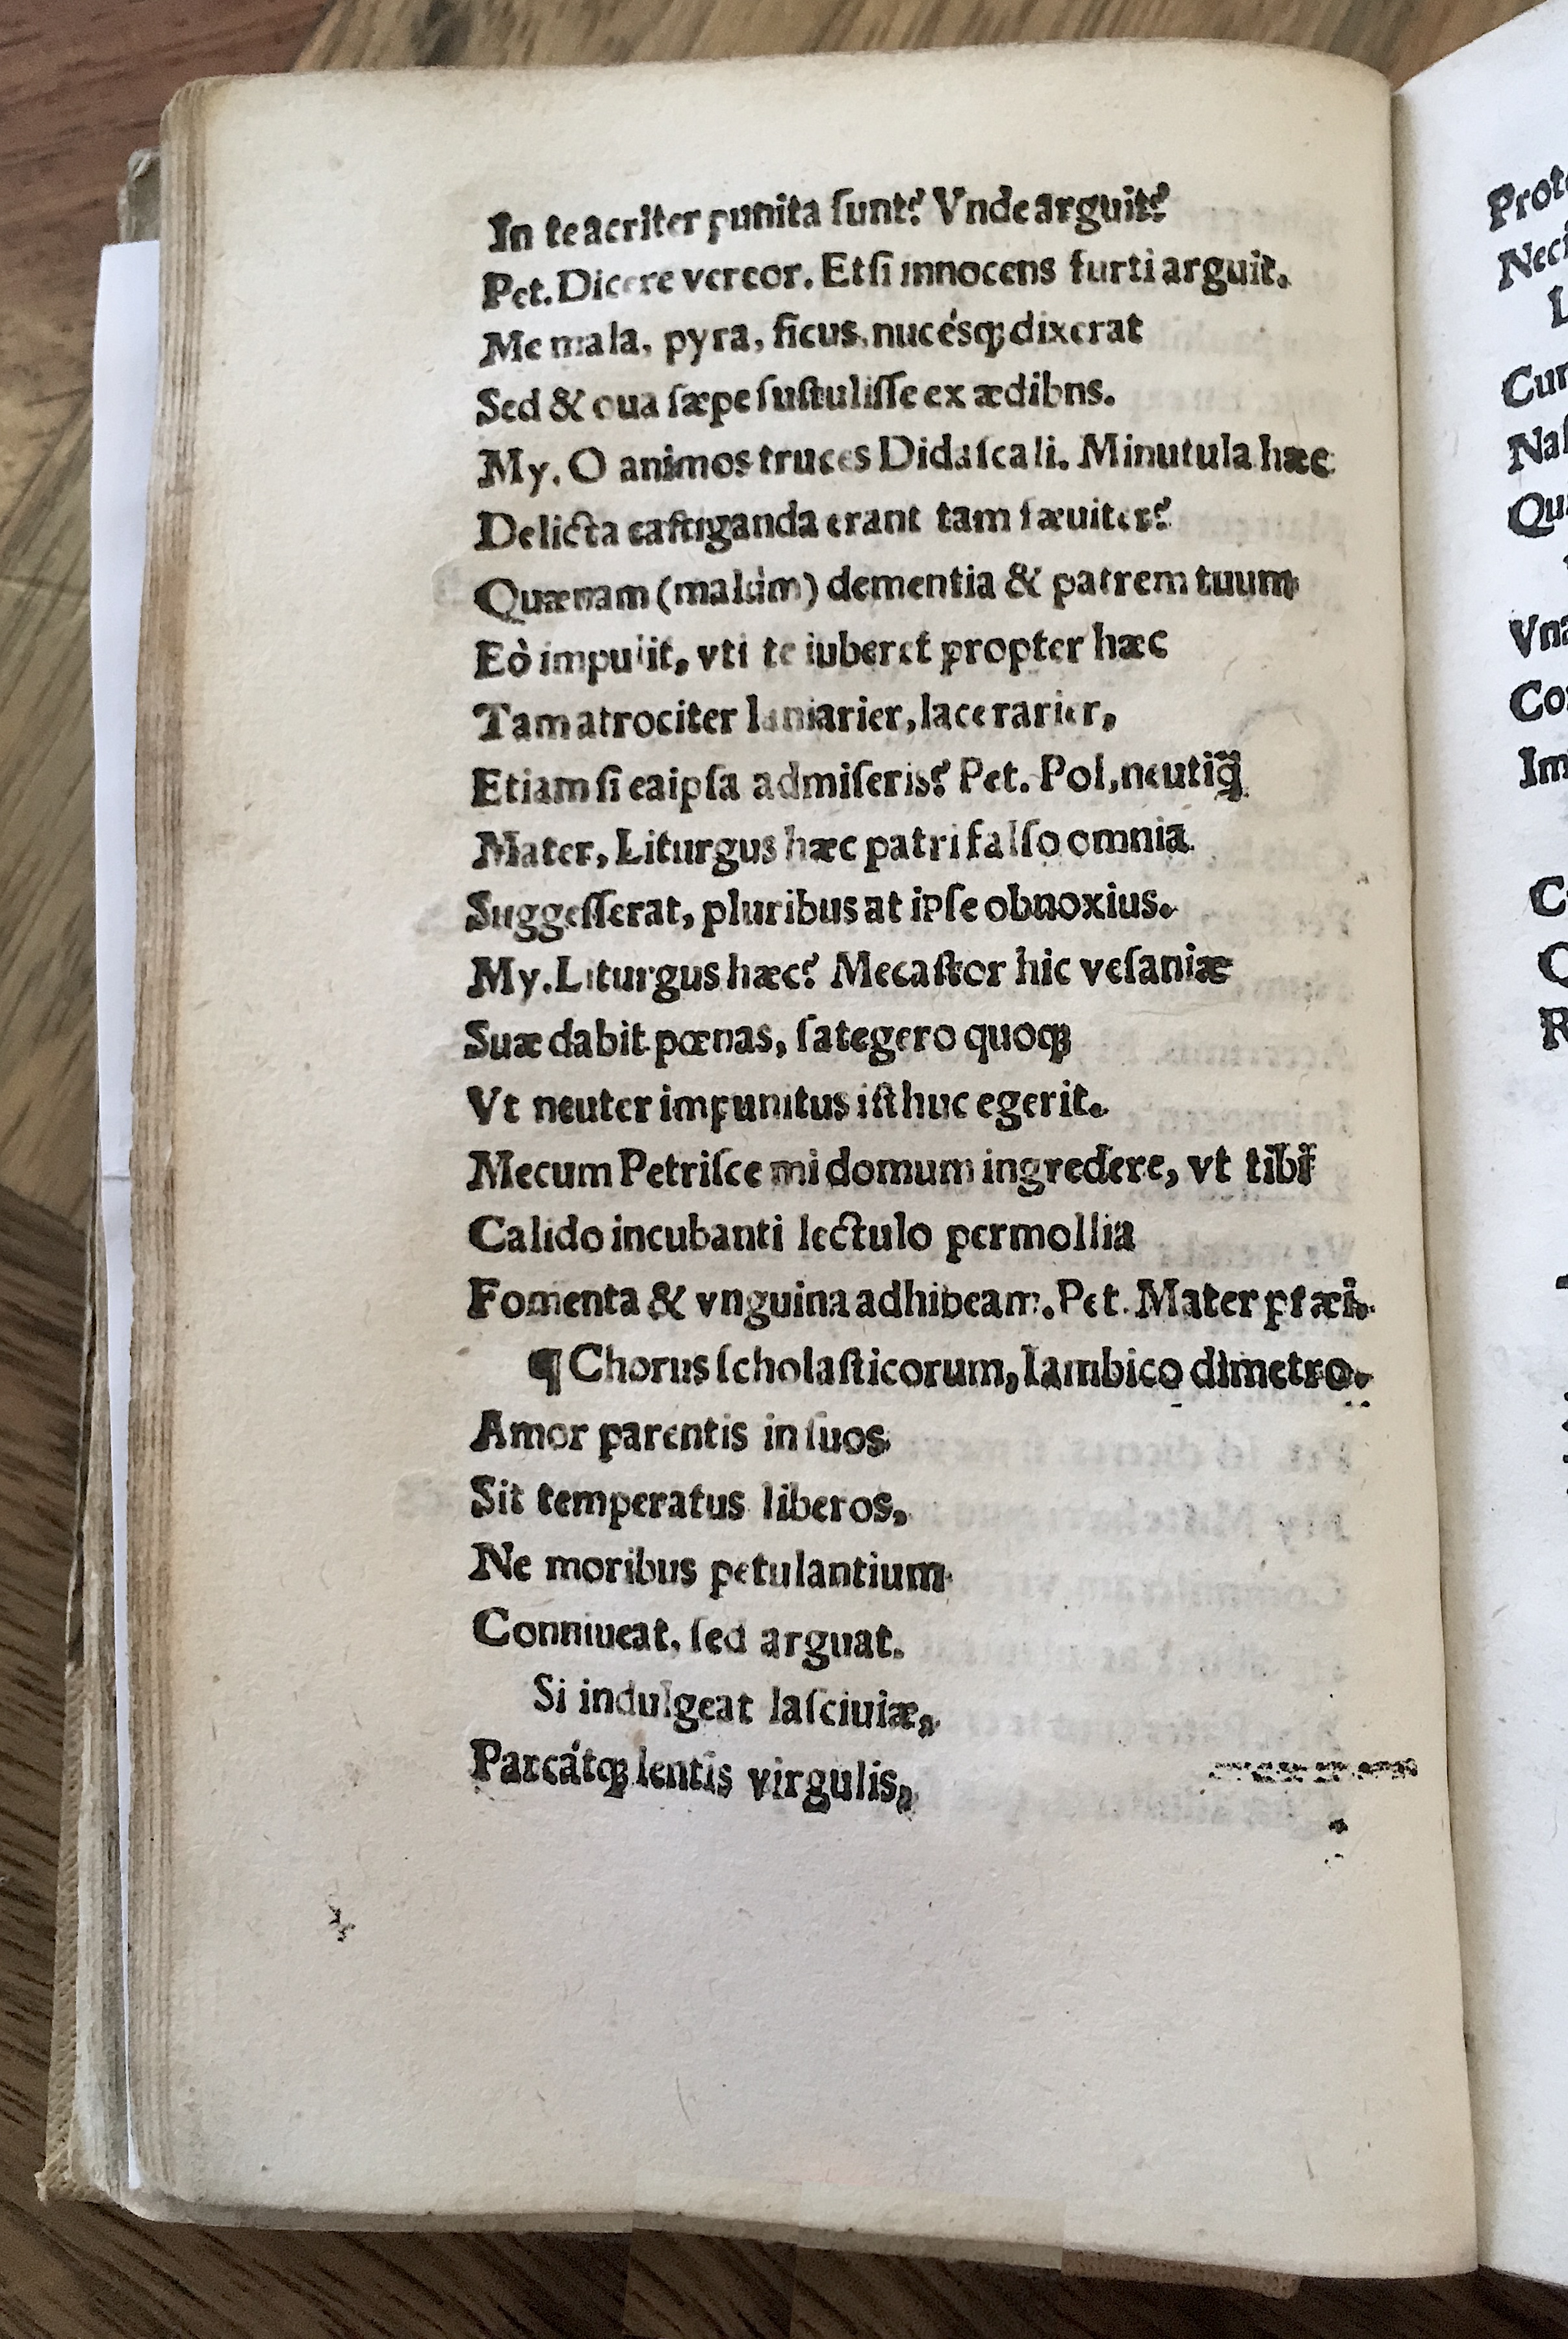 In te acriter punita ſunt? Vnde arguit?
Pet. Dicere vereor. Etſi innocens furti arguit.
Me mala, pyra, ficus, nucésq; dixerat
Sed & oua ſæpe ſuſtuliſſe ex ædibns.
My. O animos truces Didaſcali. Minutula hæc
Delicta caſtiganda erant tam ſæuiter?
Quænam (malùm) dementia & patrem tuum
Eò impulit, vti te iuberet propter hæc
Tam atrociter laniarier, lacerarier,
Etiam ſi ea ipſa admiſeris? Pet. Pol, neutiq̃
Mater, Liturgus hæc patri falſo omnia
Suggeſſerat, pluribus at ipſe obnoxius.
My. Liturgus hæc? Mecaſtor hic veſaniæ
Suæ dabit pœnas, ſategero quoq;
Vt neuter impunitus iſthuc egerit.
Mecum Petriſce mi domum ingredere, vt tibi
Calido incubanti lectulo permollia
Fomenta & vnguina adhibeam. Pet. Mater præi.
¶ Chorus ſcholaſticorum, Iambico dimetro.
Amor parentis in ſuos
Sit temperatus liberos,
Ne moribus petulantium
Conniueat, ſed arguat.
Si indulgeat laſciuiæ,
Parcátq; lentis virgulis,
Prot
Neci
L
Cur
Naſ
Qu
Vna
Co
Im
C
Q
R